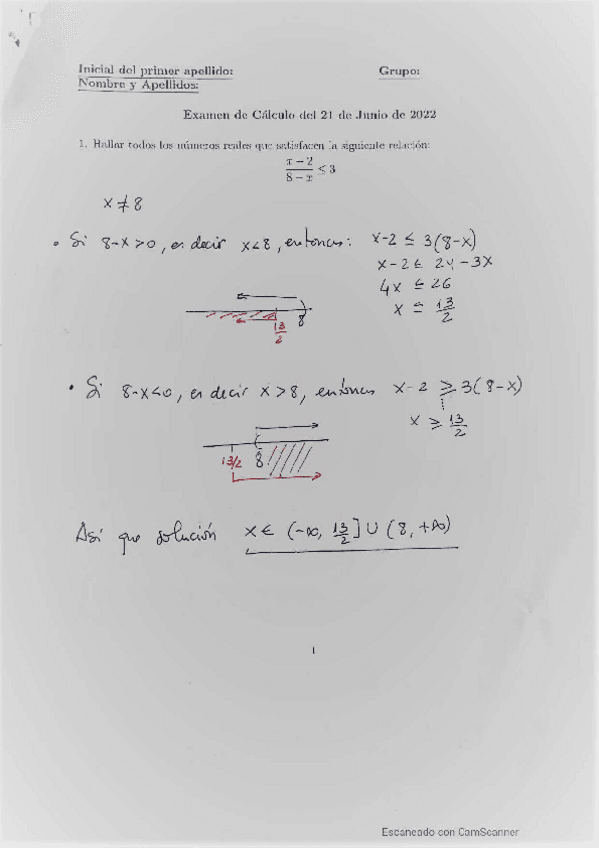 Inicial del primer apellido: Grupo:
Nombre y Apellidos:
Examen de Cálculo del 21 de Junio de 2022
1. Hallar todos los números reales que satisfacen la siguiente relación:
x − 2
8 − x ≤ 3
x ≠ 8
• Si 8-x>0, es decir x<8, entonces: x-2 ≤ 3(8-x)
x-2 ≤ 24-3x
4x ≤ 26
x ≤ 13/2
13/2 8
• Si 8-x<0, es decir x>8, entonces x-2 ≥ 3(8-x)
x ≥ 13/2
13/2 8
Así que solución x ∈ (-∞, 13/2] ∪ (8, +∞)
1
Escaneado con CamScanner